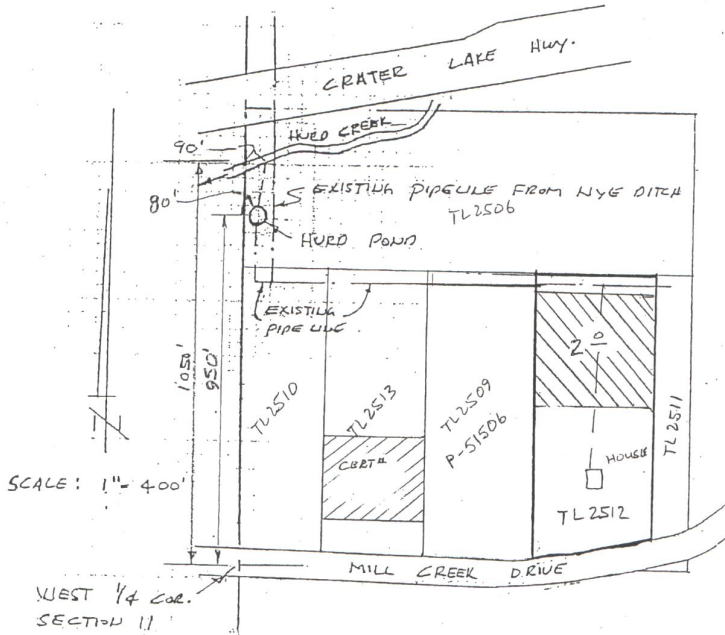 CRATER LAKE HWY.
HURD CREEK
90'
80'
EXISTING PIPELINE FROM NYE DITCH
TL2506
HURD POND
EXISTING
PIPE LINE
1050'
950'
TL2510
TL2513
TL2509
P-51506
2.0
TL2511
CERT#
HOUSE
TL2512
SCALE: 1"= 400'
MILL CREEK DRIVE
WEST 1/4 COR.
SECTION 11